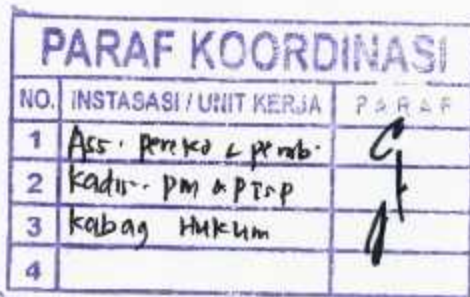 PARAF KOORDINASI
NO. INSTASASI / UNIT KERJA PARAF
1 Ass. Pereko & pemb.
2 Kadis. PM & PTSP
3 Kabag Hukum
4